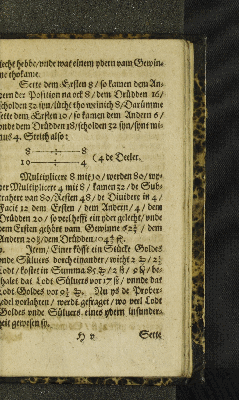 lecht hebbe/ vnde wat einem ydern vam Gewin-
ne thokame.
Sette dem Ersten 8/ so kamen dem An-
dern der Position na ock 8/ dem Drüdden 16/
scholden 32 syn/ lücht tho weinich 8/ Darümme
sette dem Ersten 10/ so kamen dem Andern 6/
vnde dem Drüdden 18/ scholden 32 syn/ synt mi-
nus 4. Steith also:
8 8
÷ (4 de Deeler.
10 4
Multiplicere 8 mit 10/ werden 80/
der Multiplicere 4 mit 8/ kamen 32/ de Sub-
trahert van 80/ Resten 48/ de Diuidere in 4/
Facit 12 dem Ersten / dem Andern/ 4/ dem
Drüdden 20/ so vel hefft ein yder gelecht/ vnde
dem Ersten gehört vam Gewinne 62 dem
Andern 20 dem Drüdden/ 104
Item/ Einer köfft ein Stücke Goldes
vnde Süluers dorch einander/ wicht 2
Lodt/ kostet in Summa 85 6 be-
thalet dat Lodt Süluers vor 17 vnnde dat
Lodt Goldes vor 9 Nu ys de Prober-
zedel vorlahren/ werdt gefraget/ wo veel Lodt
Goldes vnde Süluers eines ydern insunder-
heit gewesen sy.
H v Sette